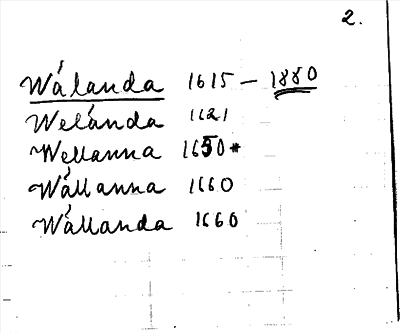 2.
Wálanda 1615 – 1880
Welánda 1621
Wellanna 1650*
Wállanna 1660
Wállanda 1660